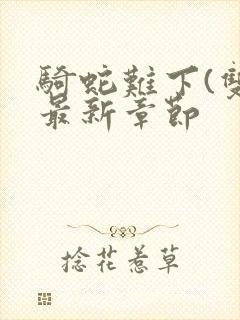 騎蛇難下(雙
最新章節
捻花惹草